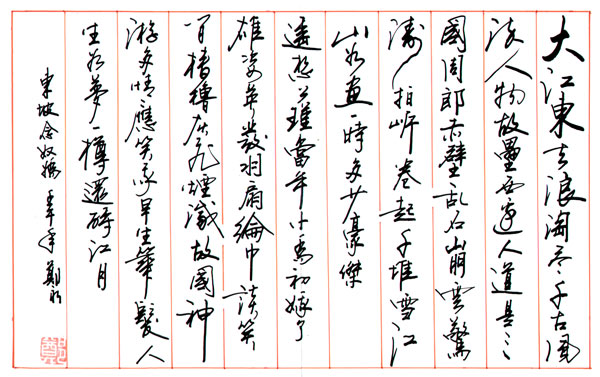 大江東去浪淘尽千古風
流人物故壘西邊人道是三
國周郎赤壁乱石崩雲驚
濤拍岸卷起千堆雪江
山如畫一時多少豪傑
遥想公瑾當年小喬初嫁了
雄姿英發羽扇綸巾談笑
间樯櫓灰飛煙滅故國神
游多情應笑我早生華髮人
生如夢一樽還酹江月
東坡念奴嬌 鄭